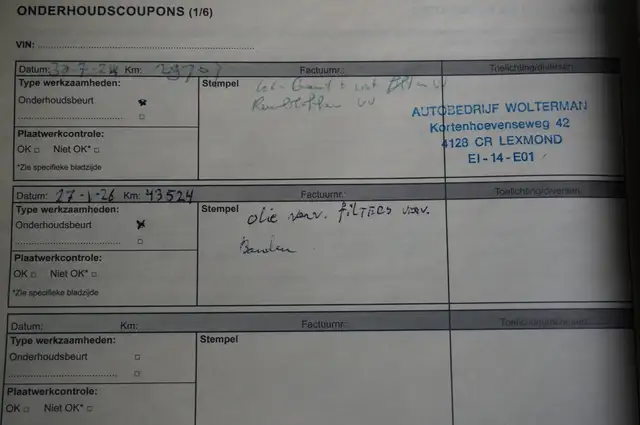 ONDERHOUDSCOUPONS (1/6)
VIN:
Datum: 30-7-24 Km: 29707 Factuurnr.: Toelichting/diversen
Type werkzaamheden: Stempel
Onderhoudsbeurt
Remvloeistof VV
AUTOBEDRIJF WOLTERMAN
Kortenhoevenseweg 42
4128 CR LEXMOND
EI-14-E01
Plaatwerkcontrole:
OK □ Niet OK* □
*Zie specifieke bladzijde
Datum: 27-1-26 Km: 43524 Factuurnr.: Toelichting/diversen
Type werkzaamheden: Stempel
Onderhoudsbeurt
olie verv. filters verv.
Banden
Plaatwerkcontrole:
OK □ Niet OK* □
*Zie specifieke bladzijde
Datum: Km: Factuurnr.: Toelichting/diversen
Type werkzaamheden: Stempel
Onderhoudsbeurt □
Plaatwerkcontrole:
OK □ Niet OK* □